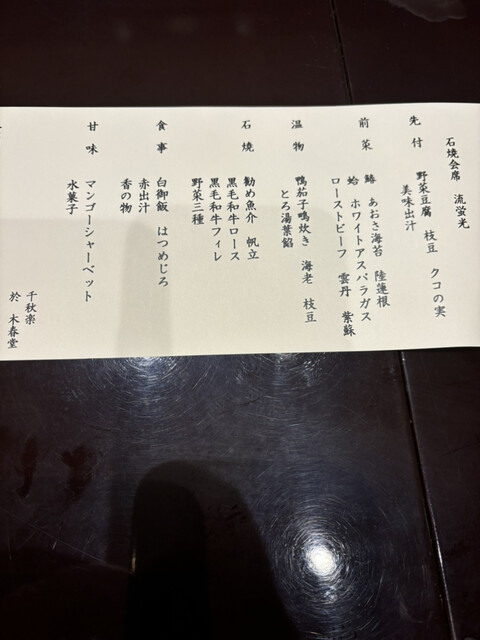 石焼会席　流蛍光
先付　野菜豆腐　枝豆　クコの実
美味出汁
前菜　鰆　あおさ海苔　陸蓮根
蛤　ホワイトアスパラガス
ローストビーフ　雲丹　紫蘇
温物　鴨茄子鴫炊き　海老　枝豆
とろ湯葉餡
石焼　勧め魚介　帆立
黒毛和牛ロース
黒毛和牛フィレ
野菜三種
食事　白御飯　はつめじろ
赤出汁
香の物
甘味　マンゴーシャーベット
水菓子
千秋楽
於　木春堂